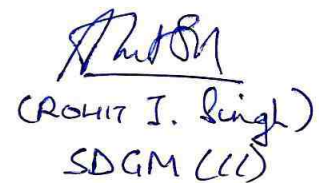 (ROHIT J. Singh)
SDGM (CC)